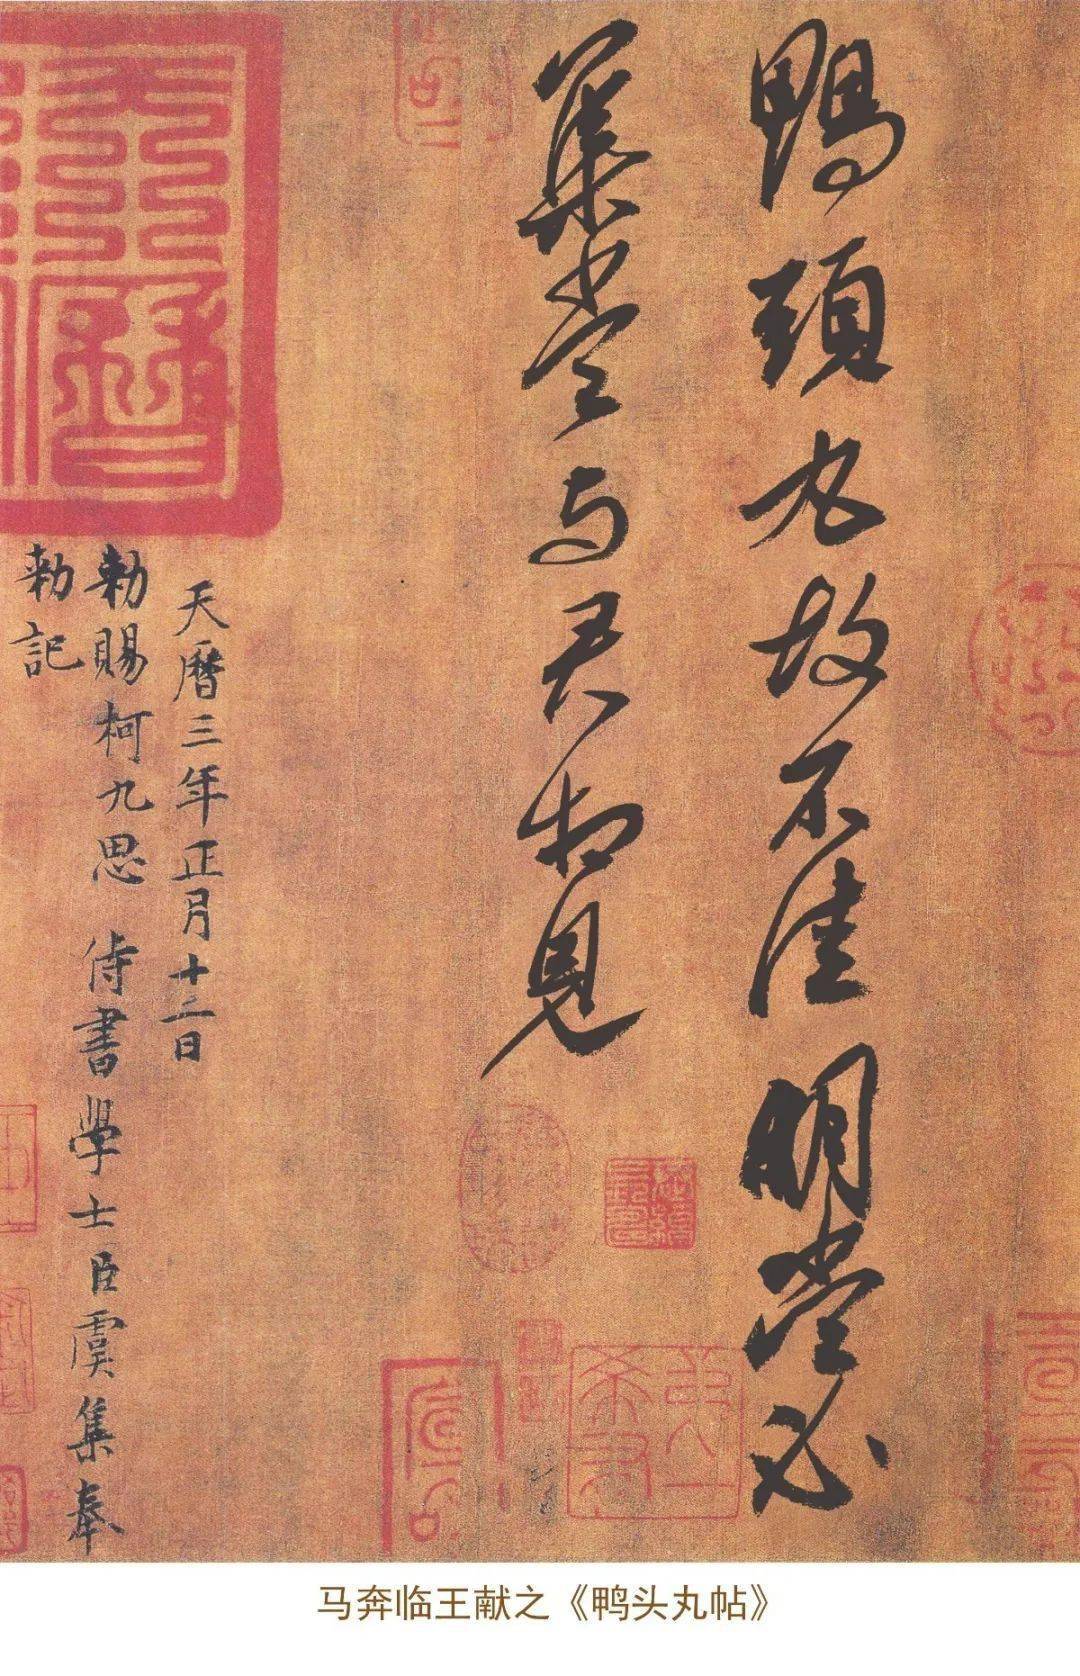 鴨頭丸故不佳明當必
集當与君相見
天曆三年正月十二日
勅賜柯九思 侍書學士臣虞集奉
勅記
天曆
马奔临王献之《鸭头丸帖》